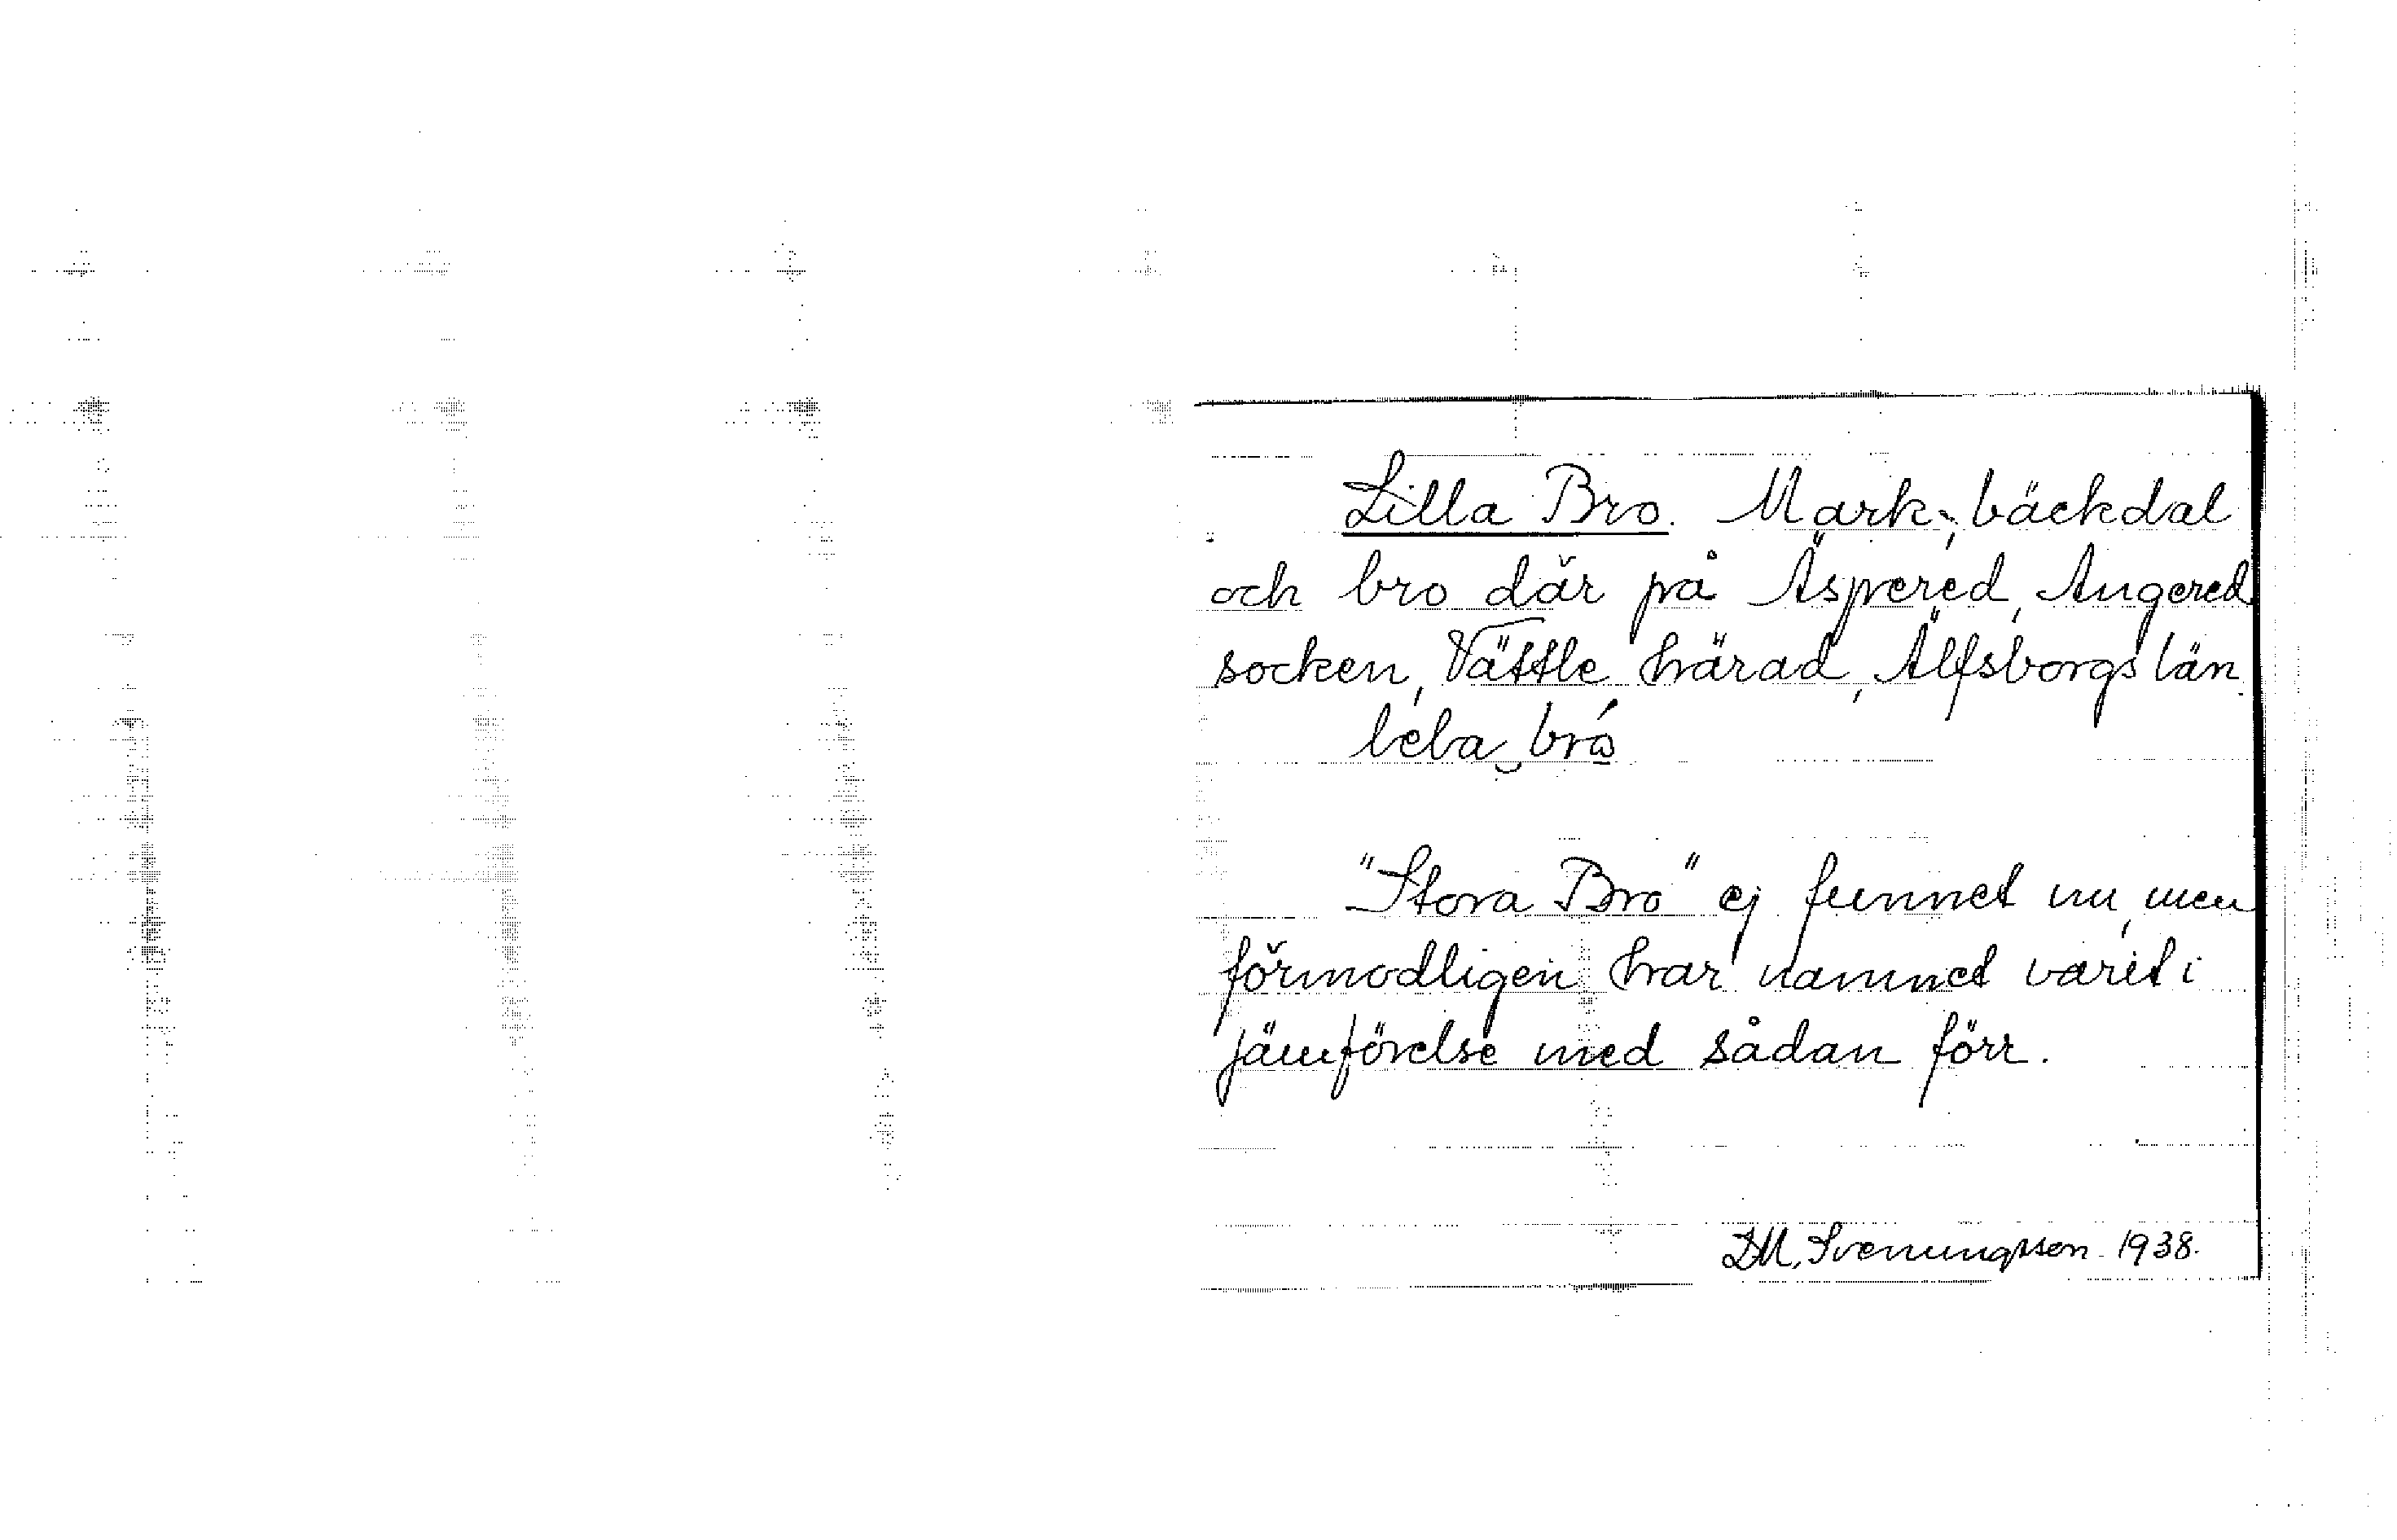 Lilla Bro. Mark, bäckdal
och bro där på Äspered, Angered
socken, Vättle härad, Älfsborgs län.
bro
"Stora Bro" ej funnet nu, men
förmodligen har namnet varit i
jämförelse med sådan förr.
D.M. Svenungsson 1938.